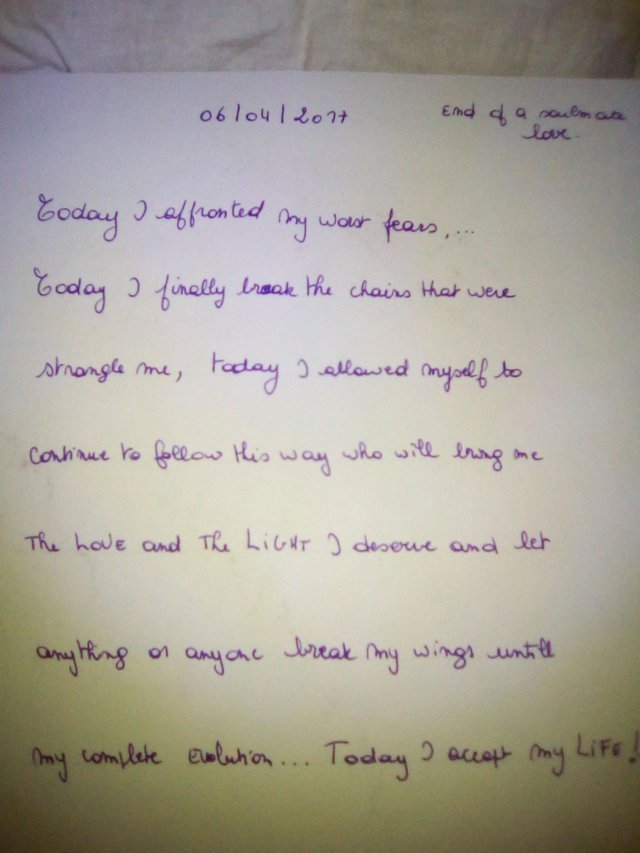 06/04/2017
End of a soulmate
love.
Today I affronted my worst fears,...
Today I finally break the chains that were
strangle me, today I allowed myself to
continue to follow this way who will bring me
The LovE and The LiGHT I deserve and let
anything or anyone break my wings untill
my complete Evolution... Today I accept my LiFE!